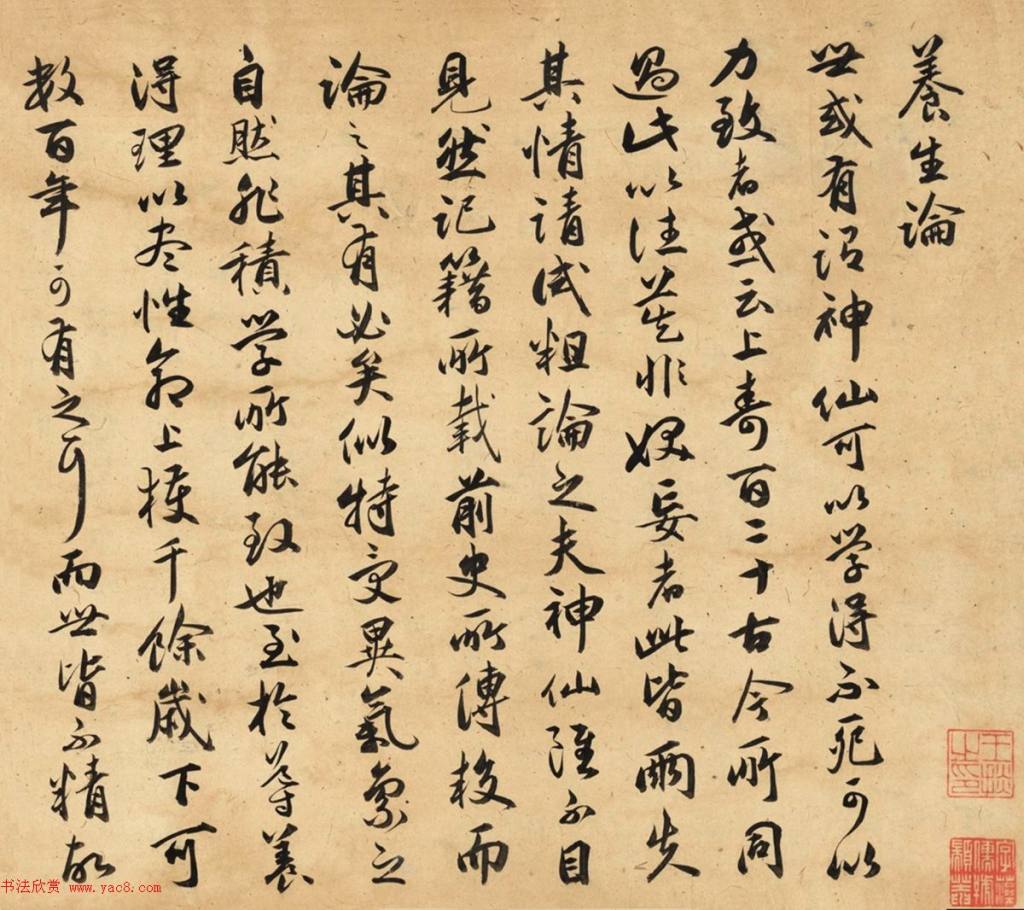 養生論
世或有謂神仙可以学得不死可以
力致者或云上壽百二十古今所同
過此以往莫非妖妄者此皆兩失
其情請試粗論之夫神仙雖不目
見然記籍所載前史所傳較而
論之其有必矣似特受異氣稟之
自然非積学所能致也至於導養
得理以尽性命上獲千餘歲下可
数百年可有之耳而世皆不精故
书法欣赏 www.yac8.com